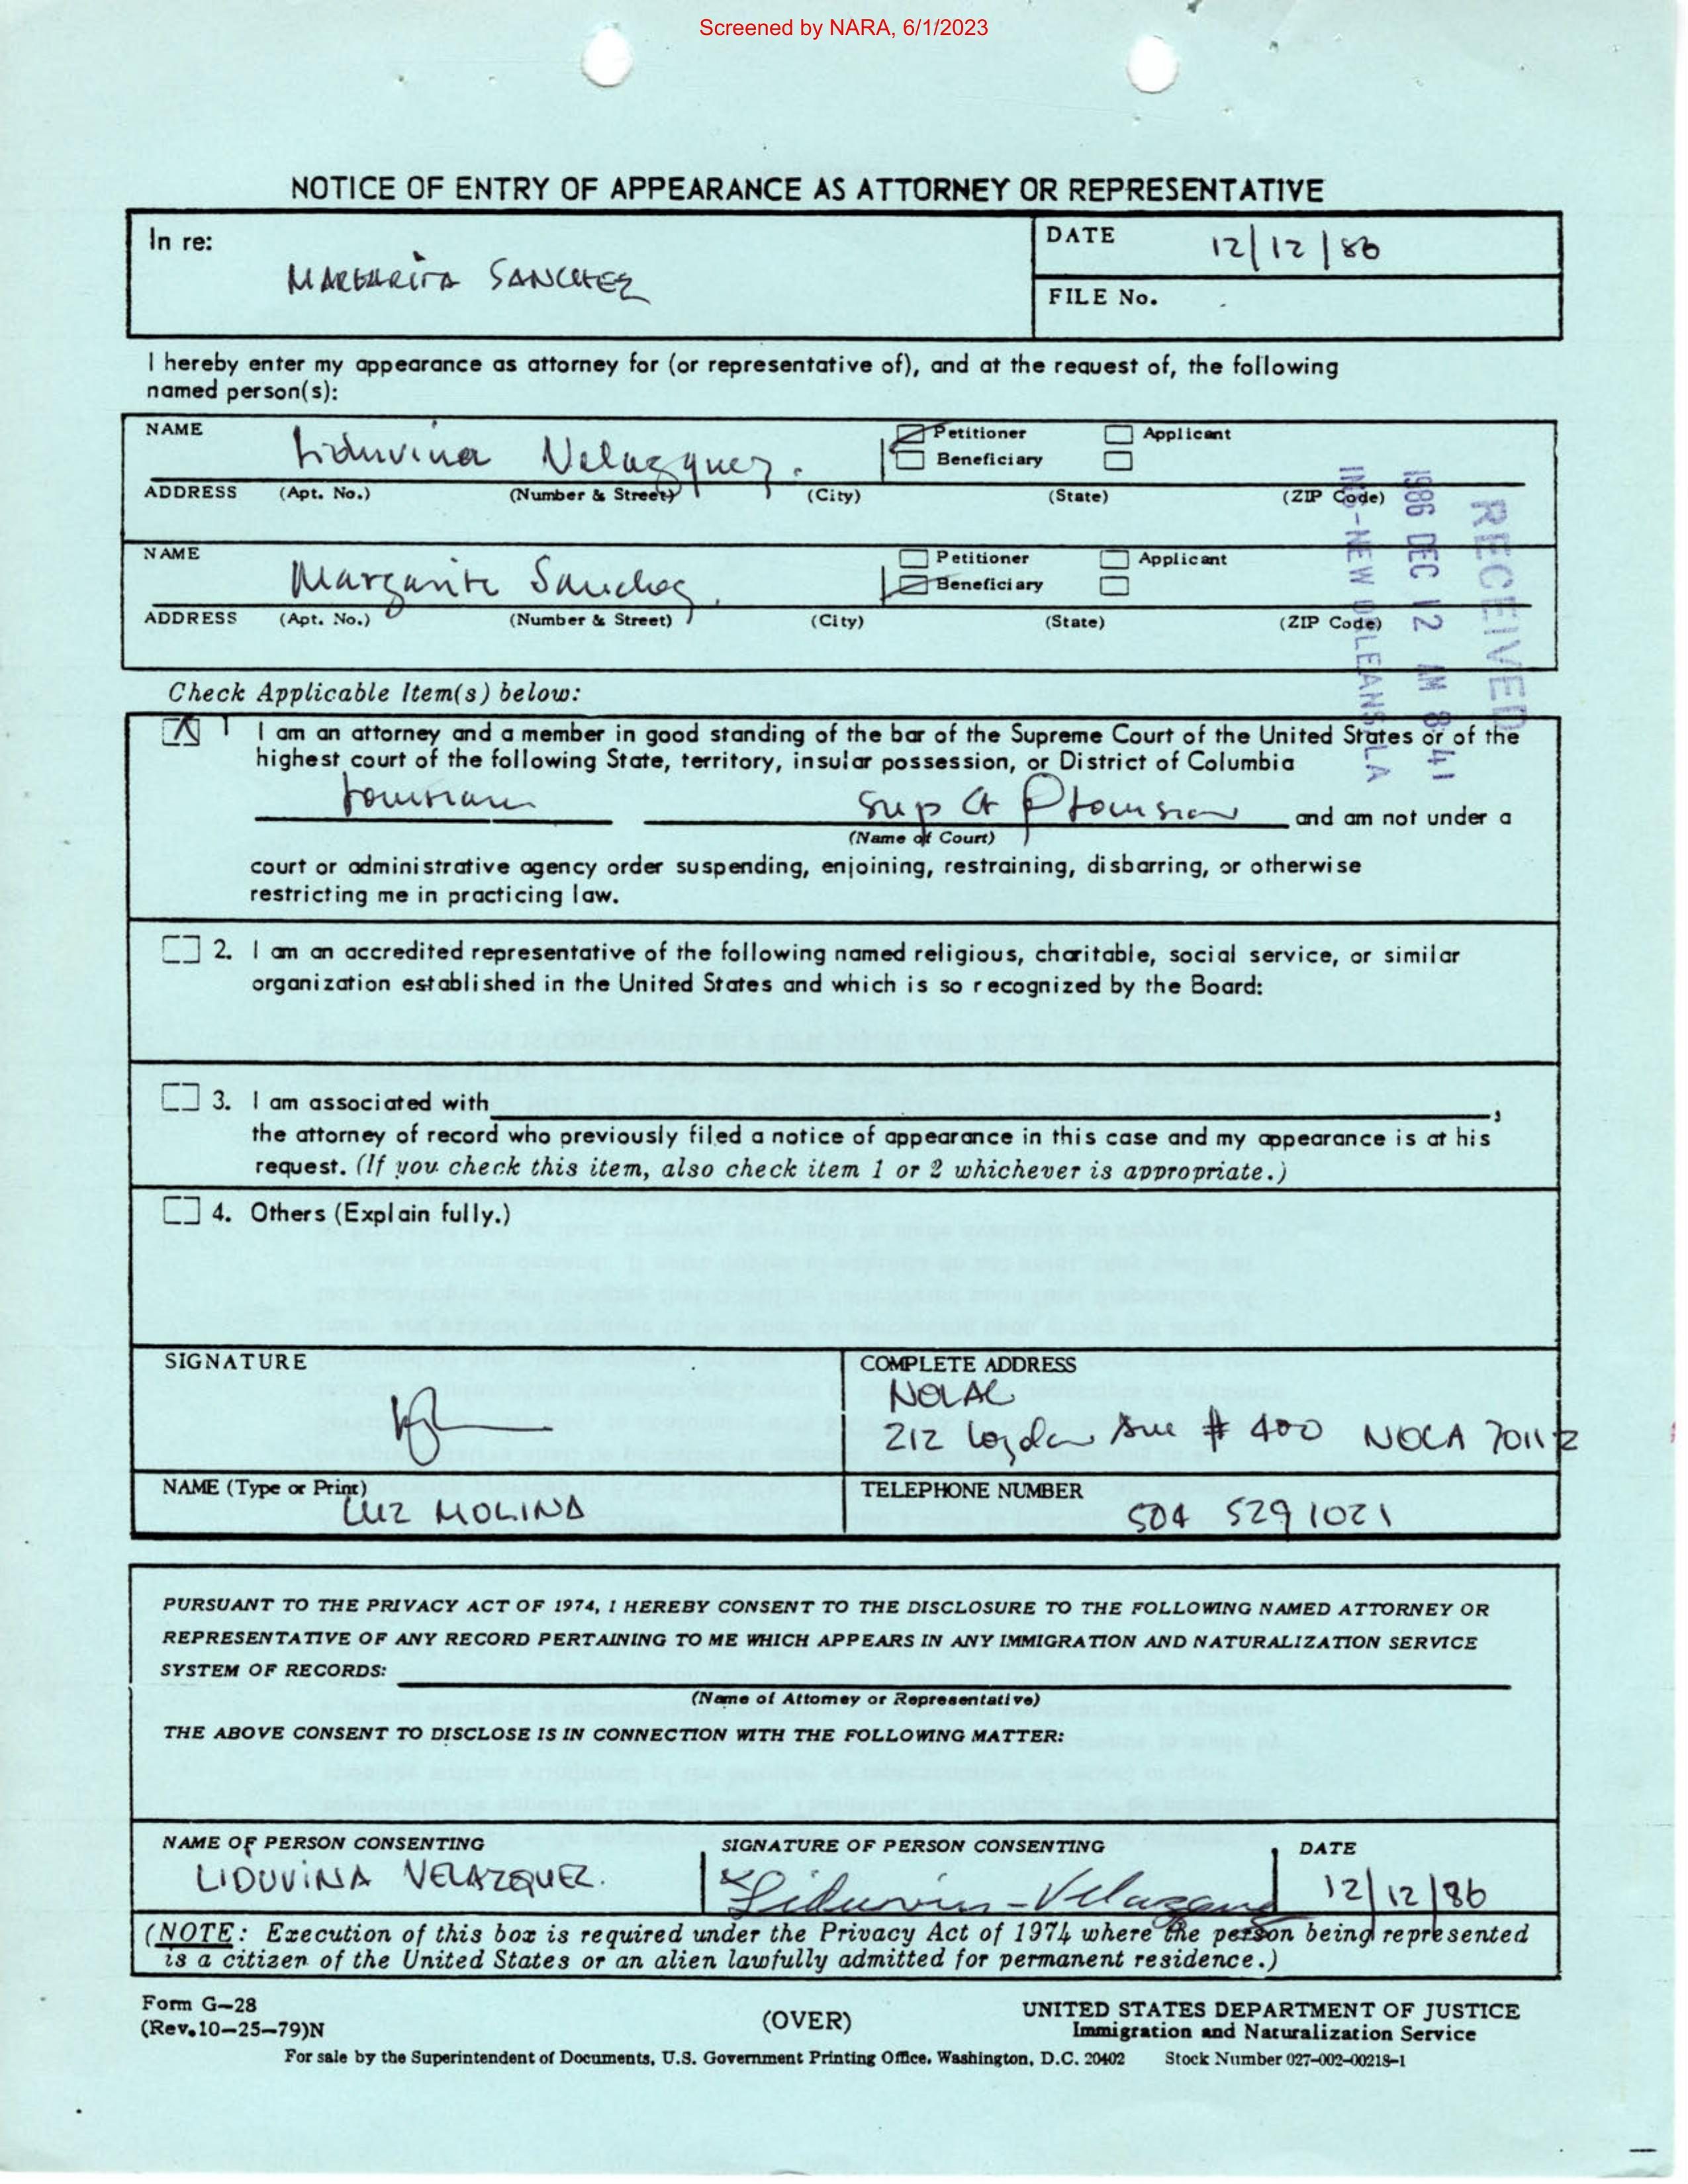 Screened by NARA, 6/1/2023
NOTICE OF ENTRY OF APPEARANCE AS ATTORNEY OR REPRESENTATIVE
In re:
MARGARITA SANCHEZ
DATE 12/12/86
FILE No.
I hereby enter my appearance as attorney for (or representative of), and at the request of, the following
named person(s):
NAME
Liduvina Velazquez.
Petitioner
Applicant
Beneficiary
ADDRESS (Apt. No.) (Number & Street) (City) (State) (ZIP Code)
NAME
Margarita Sanchez
Petitioner
Applicant
Beneficiary
ADDRESS (Apt. No.) (Number & Street) (City) (State) (ZIP Code)
RECEIVED
1986 DEC 12 AM 8:41
INS-NEW ORLEANS, LA
Check Applicable Item(s) below:
1 I am an attorney and a member in good standing of the bar of the Supreme Court of the United States or of the
highest court of the following State, territory, insular possession, or District of Columbia
Louisiana Sup Ct of Louisiana and am not under a
(Name of Court)
court or administrative agency order suspending, enjoining, restraining, disbarring, or otherwise
restricting me in practicing law.
2. I am an accredited representative of the following named religious, charitable, social service, or similar
organization established in the United States and which is so recognized by the Board:
3. I am associated with ,
the attorney of record who previously filed a notice of appearance in this case and my appearance is at his
request. (If you check this item, also check item 1 or 2 whichever is appropriate.)
4. Others (Explain fully.)
SIGNATURE
COMPLETE ADDRESS
NOLAC
212 Loyola Ave # 400 NOLA 70112
NAME (Type or Print)
LUZ MOLINA
TELEPHONE NUMBER
504 529 1021
PURSUANT TO THE PRIVACY ACT OF 1974, I HEREBY CONSENT TO THE DISCLOSURE TO THE FOLLOWING NAMED ATTORNEY OR
REPRESENTATIVE OF ANY RECORD PERTAINING TO ME WHICH APPEARS IN ANY IMMIGRATION AND NATURALIZATION SERVICE
SYSTEM OF RECORDS:
(Name of Attorney or Representative)
THE ABOVE CONSENT TO DISCLOSE IS IN CONNECTION WITH THE FOLLOWING MATTER:
NAME OF PERSON CONSENTING
LIDUVINA VELAZQUEZ.
SIGNATURE OF PERSON CONSENTING
x Liduvina-Velazquez
DATE
12/12/86
(NOTE: Execution of this box is required under the Privacy Act of 1974 where the person being represented
is a citizen of the United States or an alien lawfully admitted for permanent residence.)
Form G-28
(Rev.10-25-79)N
(OVER)
UNITED STATES DEPARTMENT OF JUSTICE
Immigration and Naturalization Service
For sale by the Superintendent of Documents, U.S. Government Printing Office, Washington, D.C. 20402 Stock Number 027-002-00218-1